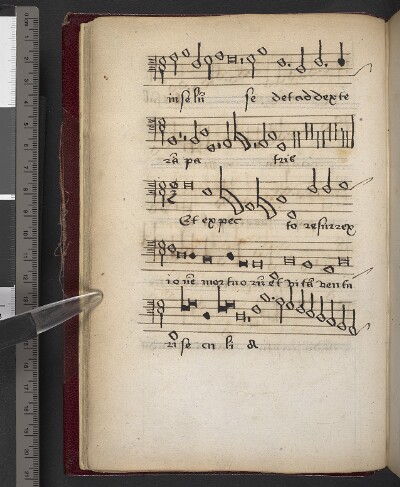 in celū se det ad dexte
rā pa tris
Et expec to resurrex
ionē mortuo rū et vitā ventu
ri se cu li a